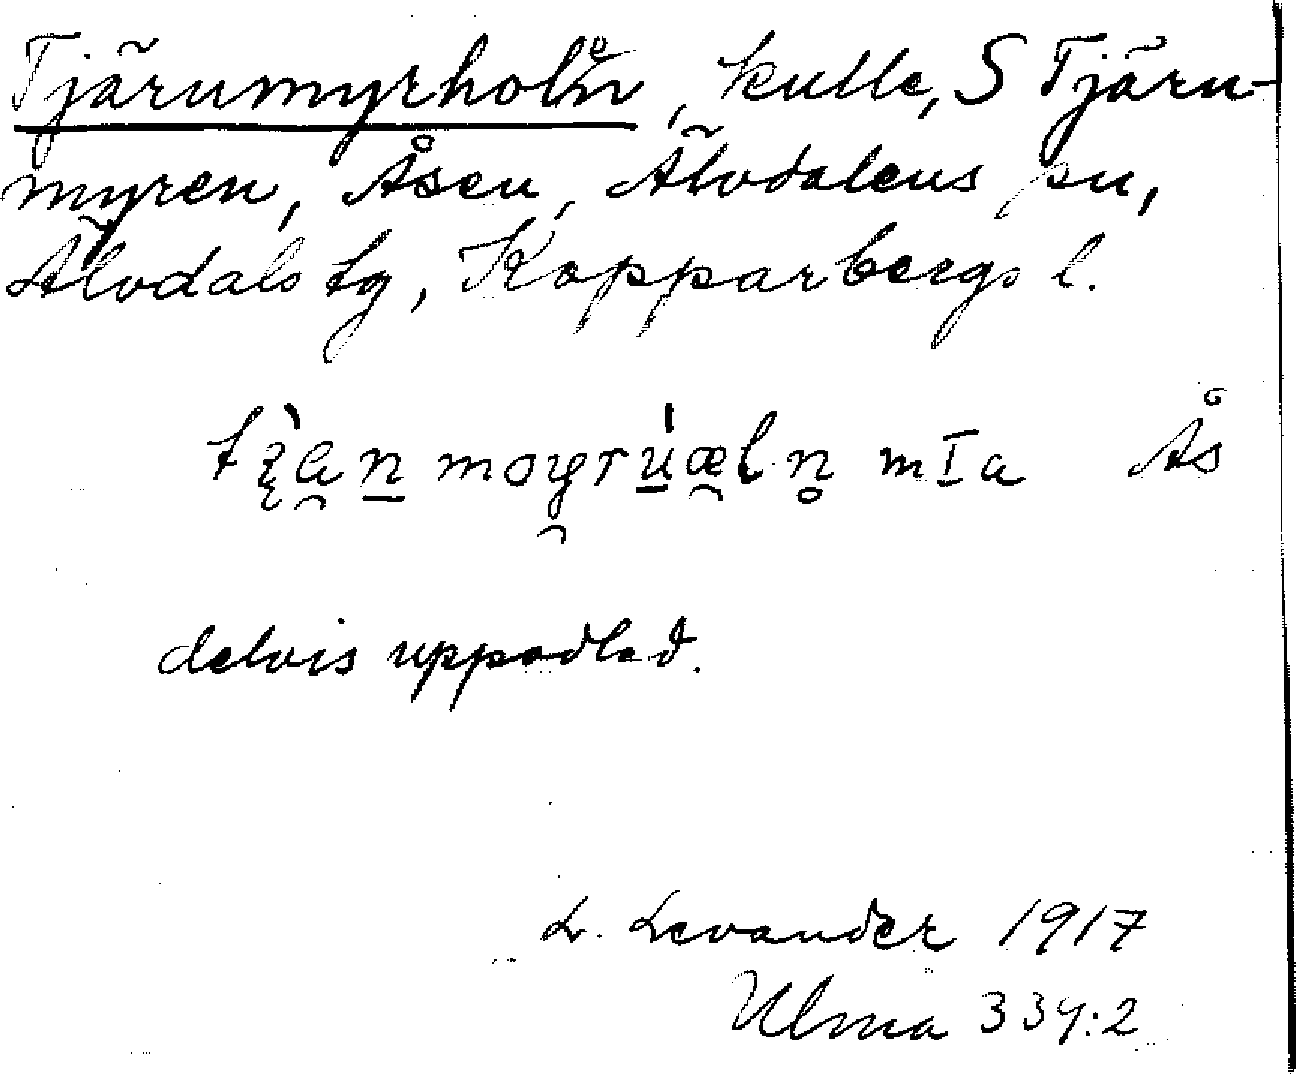 Tjärumyrholen, kulle, S Tjäru-
myren, Åsen, Älvdalens sn,
Älvdals tg, Kopparbergs l.
mIa Ås
delvis uppodlad.
L. Levander 1917
Ulma 334:2